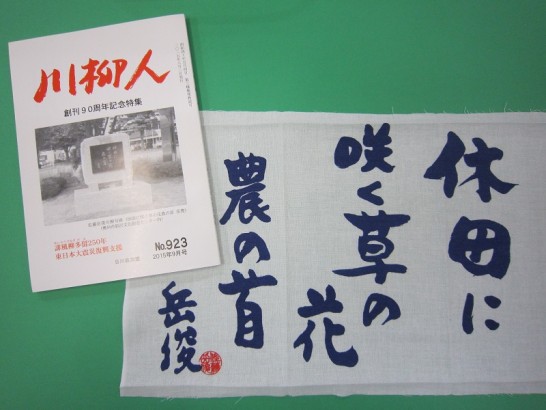 川柳人
創刊90周年記念特集
誹風柳多留250年
東日本大震災復興支援
No.923
2015年9月号
休田に
咲く草の
花
農の首
岳俊